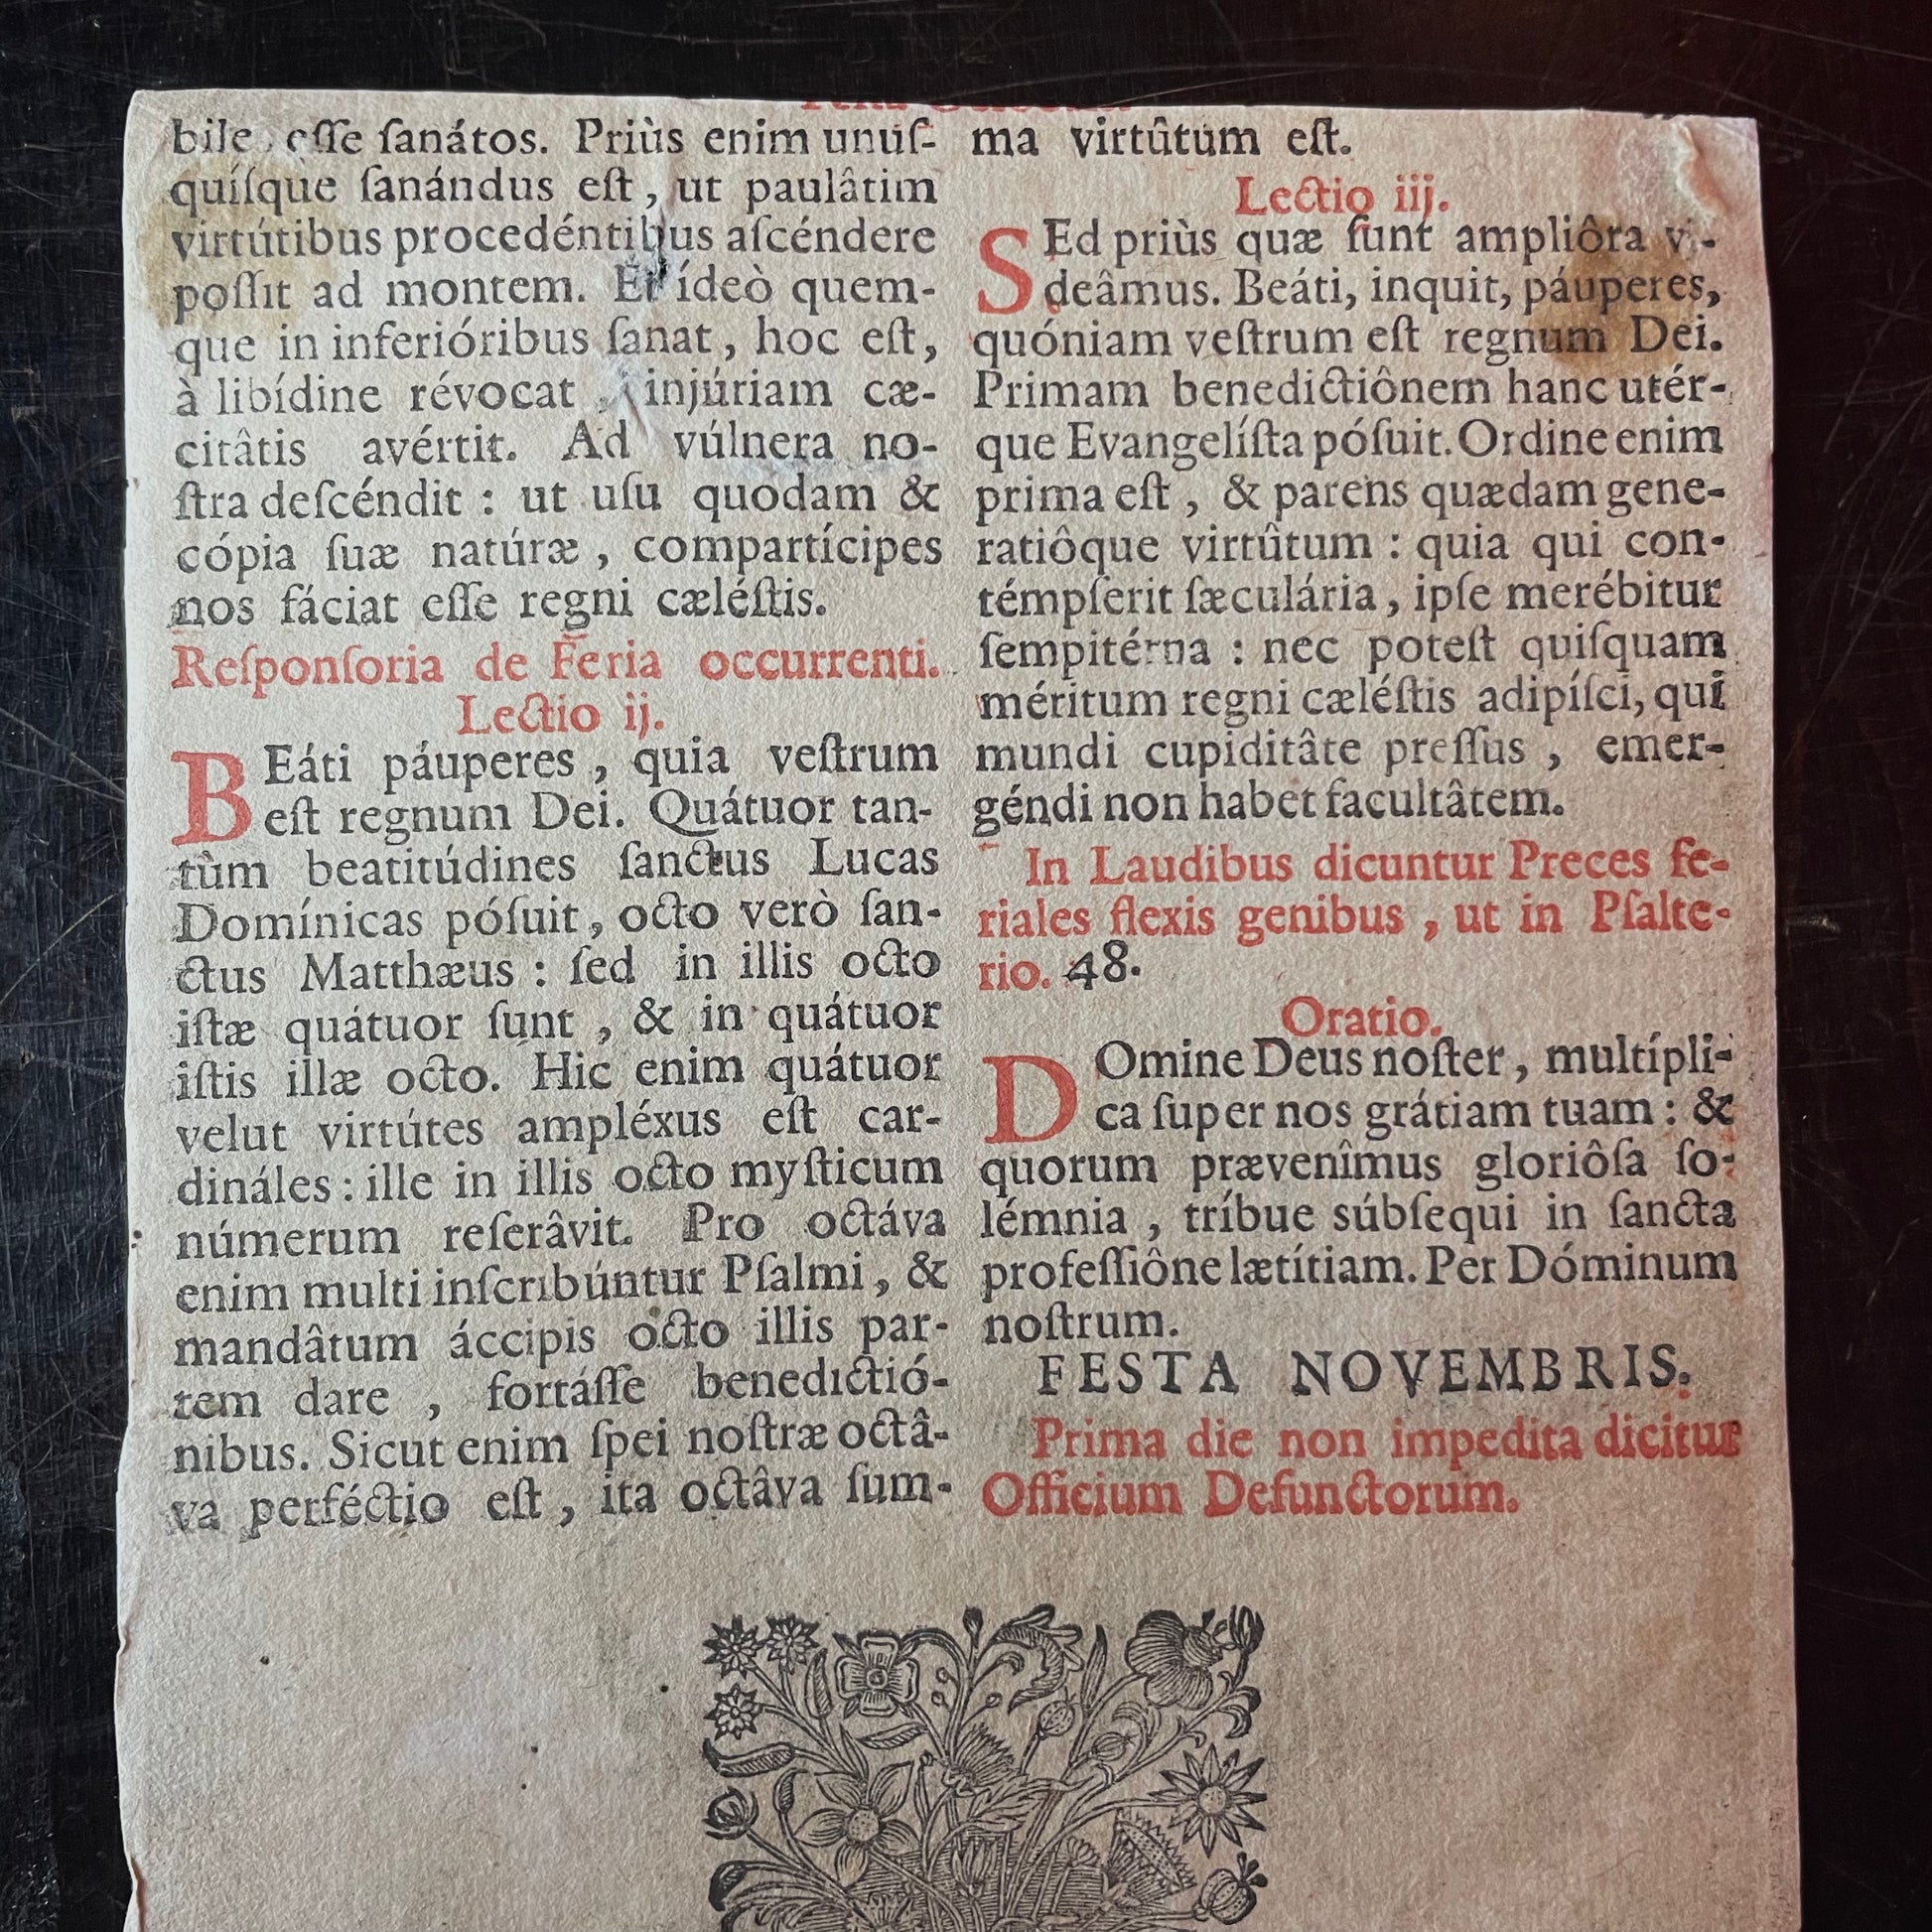 bile eſſe ſanátos. Priùs enim unuſ-
quiſque ſanándus eſt, ut paulâtim
virtútibus procedéntibus aſcéndere
poſſit ad montem. Et ídeò quem-
que in inferióribus ſanat, hoc eſt,
à libídine révocat, injúriam cæ-
citâtis avértit. Ad vúlnera no-
ſtra deſcéndit : ut uſu quodam &
cópia ſuæ natúræ, compartícipes
nos fáciat eſſe regni cæléſtis.
Reſponſoria de Feria occurrenti.
Lectio ij.
BEáti páuperes, quia veſtrum
eſt regnum Dei. Quátuor tan-
tùm beatitúdines ſanctus Lucas
Domínicas póſuit, octo verò ſan-
ctus Matthæus : ſed in illis octo
iſtæ quátuor ſunt, & in quátuor
iſtis illæ octo. Hic enim quátuor
velut virtútes ampléxus eſt car-
dináles : ille in illis octo myſticum
númerum reſerâvit. Pro octáva
enim multi inſcribúntur Pſalmi, &
mandâtum áccipis octo illis par-
tem dare, fortáſſe benedictió-
nibus. Sicut enim ſpei noſtræ octâ-
va perféctio eſt, ita octâva ſum-
ma virtûtum eſt.
Lectio iij.
SEd priùs quæ ſunt ampliôra vi-
deâmus. Beáti, inquit, páuperes,
quóniam veſtrum eſt regnum Dei.
Primam benedictiônem hanc utér-
que Evangelíſta póſuit. Ordine enim
prima eſt, & parens quædam gene-
ratiôque virtûtum : quia qui con-
témpſerit ſæculária, ipſe merébitur
ſempitérna : nec poteſt quiſquam
méritum regni cæléſtis adipíſci, qui
mundi cupiditâte preſſus, emer-
géndi non habet facultâtem.
In Laudibus dicuntur Preces fe-
riales flexis genibus, ut in Pſalte-
rio. 48.
Oratio.
DOmine Deus noſter, multípli-
ca ſuper nos grátiam tuam : &
quorum prævenîmus gloriôſa ſo-
lémnia, tríbue súbſequi in ſancta
profeſſiône lætítiam. Per Dóminum
noſtrum.
FESTA NOVEMBRIS.
Prima die non impedita dicitur
Officium Defunctorum.